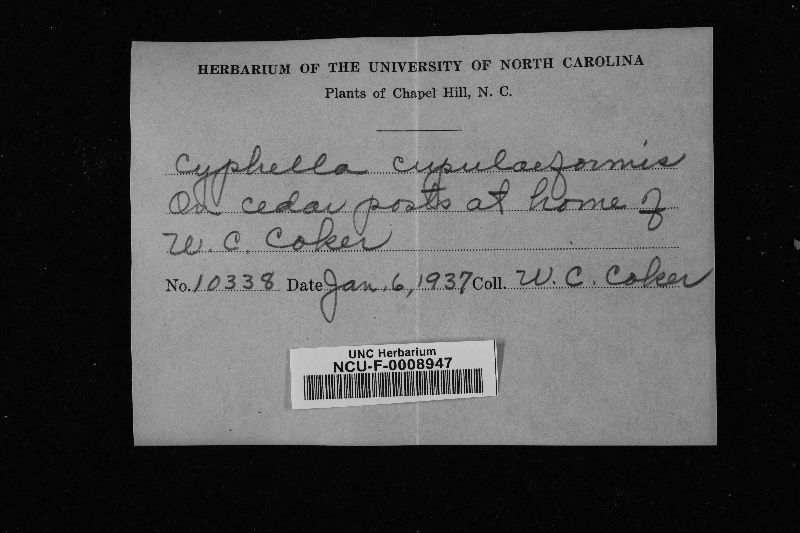 HERBARIUM OF THE UNIVERSITY OF NORTH CAROLINA
Plants of Chapel Hill, N. C.
Cyphella cupulaeformis
On cedar posts at home of
W. C. Coker
No. 10338 Date Jan. 6, 1937 Coll. W. C. Coker
UNC Herbarium
NCU-F-0008947